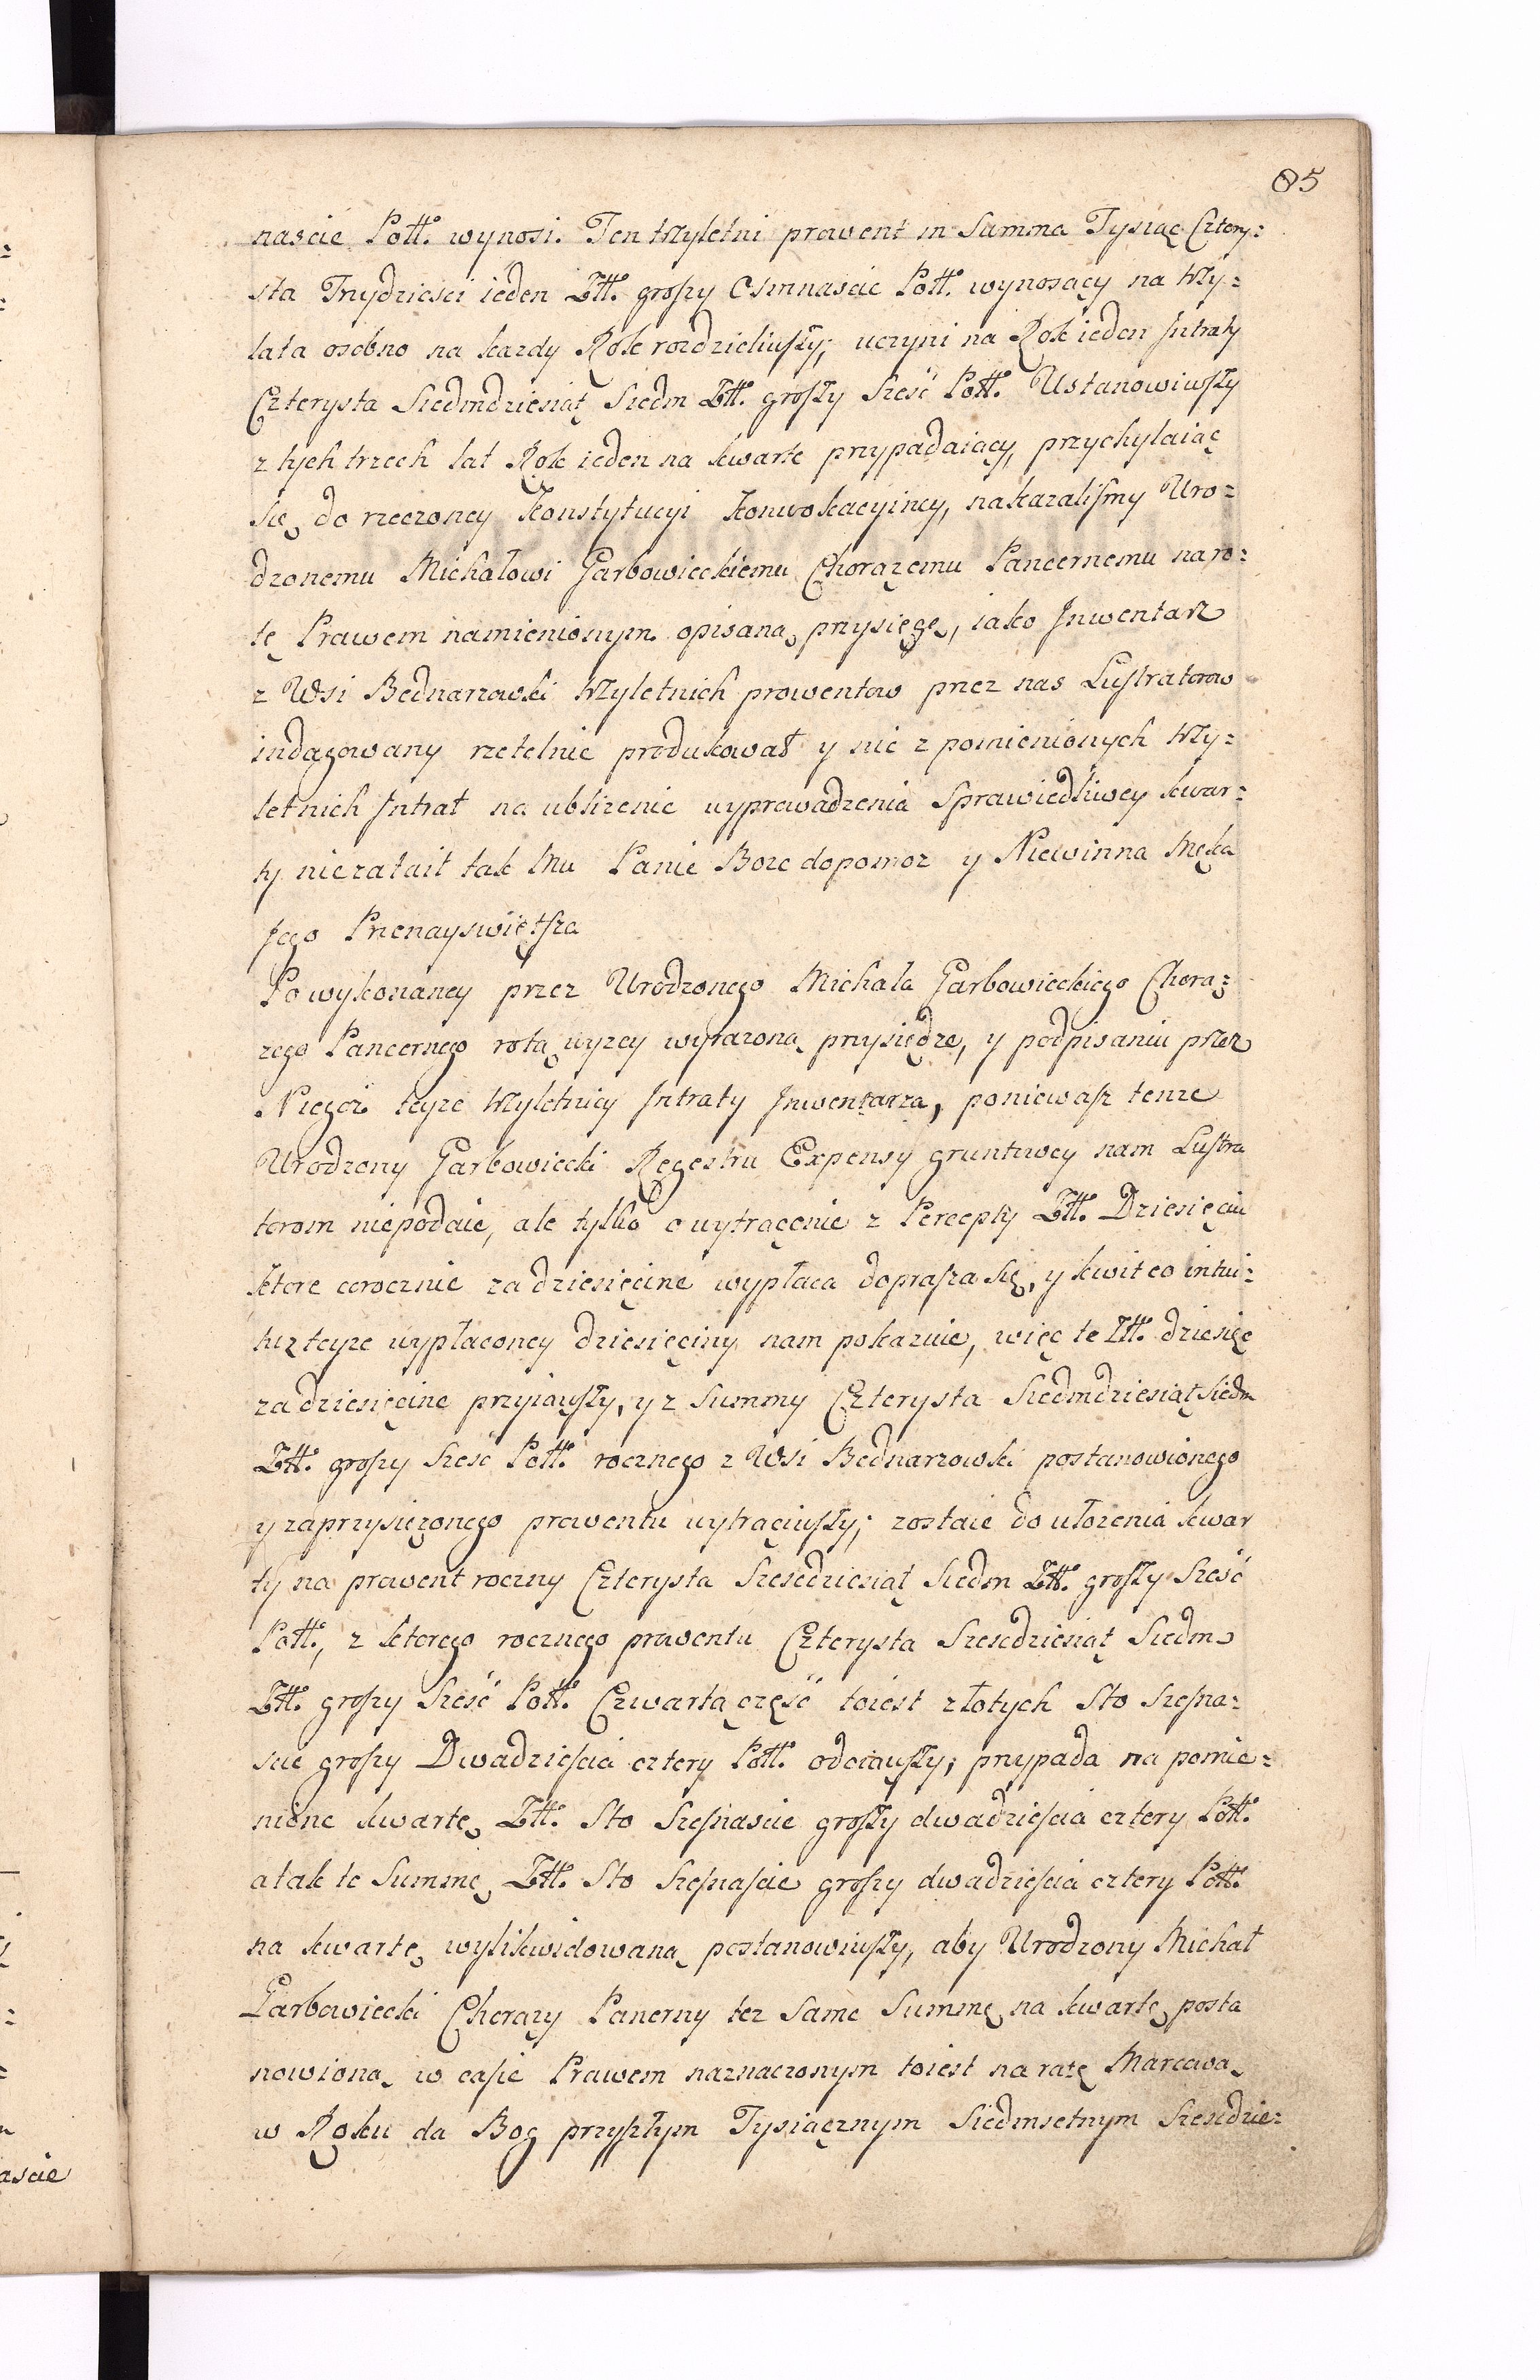 85
nascie Poll. wynosi. Ten trzyletni prowent in Summa Tysiąc Cztery=
sta Trzydziesci ieden Złł. groszy Osmnascie Poll. wynosący na trzy=
lata osobno na kazdy Rok rozdzieliwszy; uczyni na Rok ieden Intraty
Czterysta Siedmdziesiąt Siedm Złł. groszy Szesć Poll. Ustanowiwszy
z tych trzech lat Rok ieden na kwartę przypadaiący, przychylaiąc
się do rzeczoney Konstytucyi Konwokacyiney, nakazalismy Uro=
dzonemu Michałowi Garbowieckiemu Chorązemu Pancernemu na ro=
tę Prawem namienionym opisaną przysięgę, iako Inwentarz
z Wsi Bednarzowki trzyletnich prowentow przez nas Lustratorow
indagowany rzetelnie produkował y nic z pomienionych trzy=
letnich Intrat na ublizenie wyprowadzenia Sprawiedliwey kwar=
ty niezataił tak Mu Panie Boze dopomoz y Niewinna Męka
Jego Przenayswiętsza
Po wykonaney przez Urodzonego Michała Garbowieckiego Chorą=
zego Pancernego rotą wyzey wyrazoną przysiędze, y podpisaniu przez
Niegoz teyze trzyletniey Intraty Inwentarza, poniewasz tenze
Urodzony Garbowiecki Regestru Expensy gruntowey nam Lustra
torom niepodaie, ale tylko o wytrącenie z Percepty Złł. Dziesięciu
ktore corocznie za dziesięcinę wypłaca doprasza się, y kwit co intui=
tu teyze wypłaconey dziesięciny nam pokazuie, więc te Złł. dziesięc
za dziesięcinę przyiąwszy, y z Summy Czterysta Siedmdziesiąt Siedm
Złł. groszy Szesć Poll. rocznego z Wsi Bednarzowki postanowionego
y zaprzysięzonego prowentu wytrąciwszy; zostaie do ułozenia kwar
ty na prowent roczny Czterysta Szescdziesiąt Siedm Złł. groszy Szesć
Poll., z ktorego rocznego prowentu Czterysta Szescdziesiąt Siedm
Złł. groszy Szesć Poll. Czwartą częsć toiest złotych Sto Szesna=
scie groszy Dwadziescia cztery Poll. odciąwszy; przypada na pomie=
nione kwartę Złł. Sto Szesnascie groszy dwadziescia cztery Poll.
a tak te Summę Złł. Sto Szesnascie groszy dwadziescia cztery Poll.
na kwartę wylikwidowaną postanowiwszy, aby Urodzony Michał
Garbowiecki Chorązy Panerny tez Same Summę na kwartę posta
nowioną w casie Prawem naznaczonym toiest na ratę Marcową
w Roku da Bog przyszłym Tysiącznym Siedmsetnym Szescdzie=
ascie